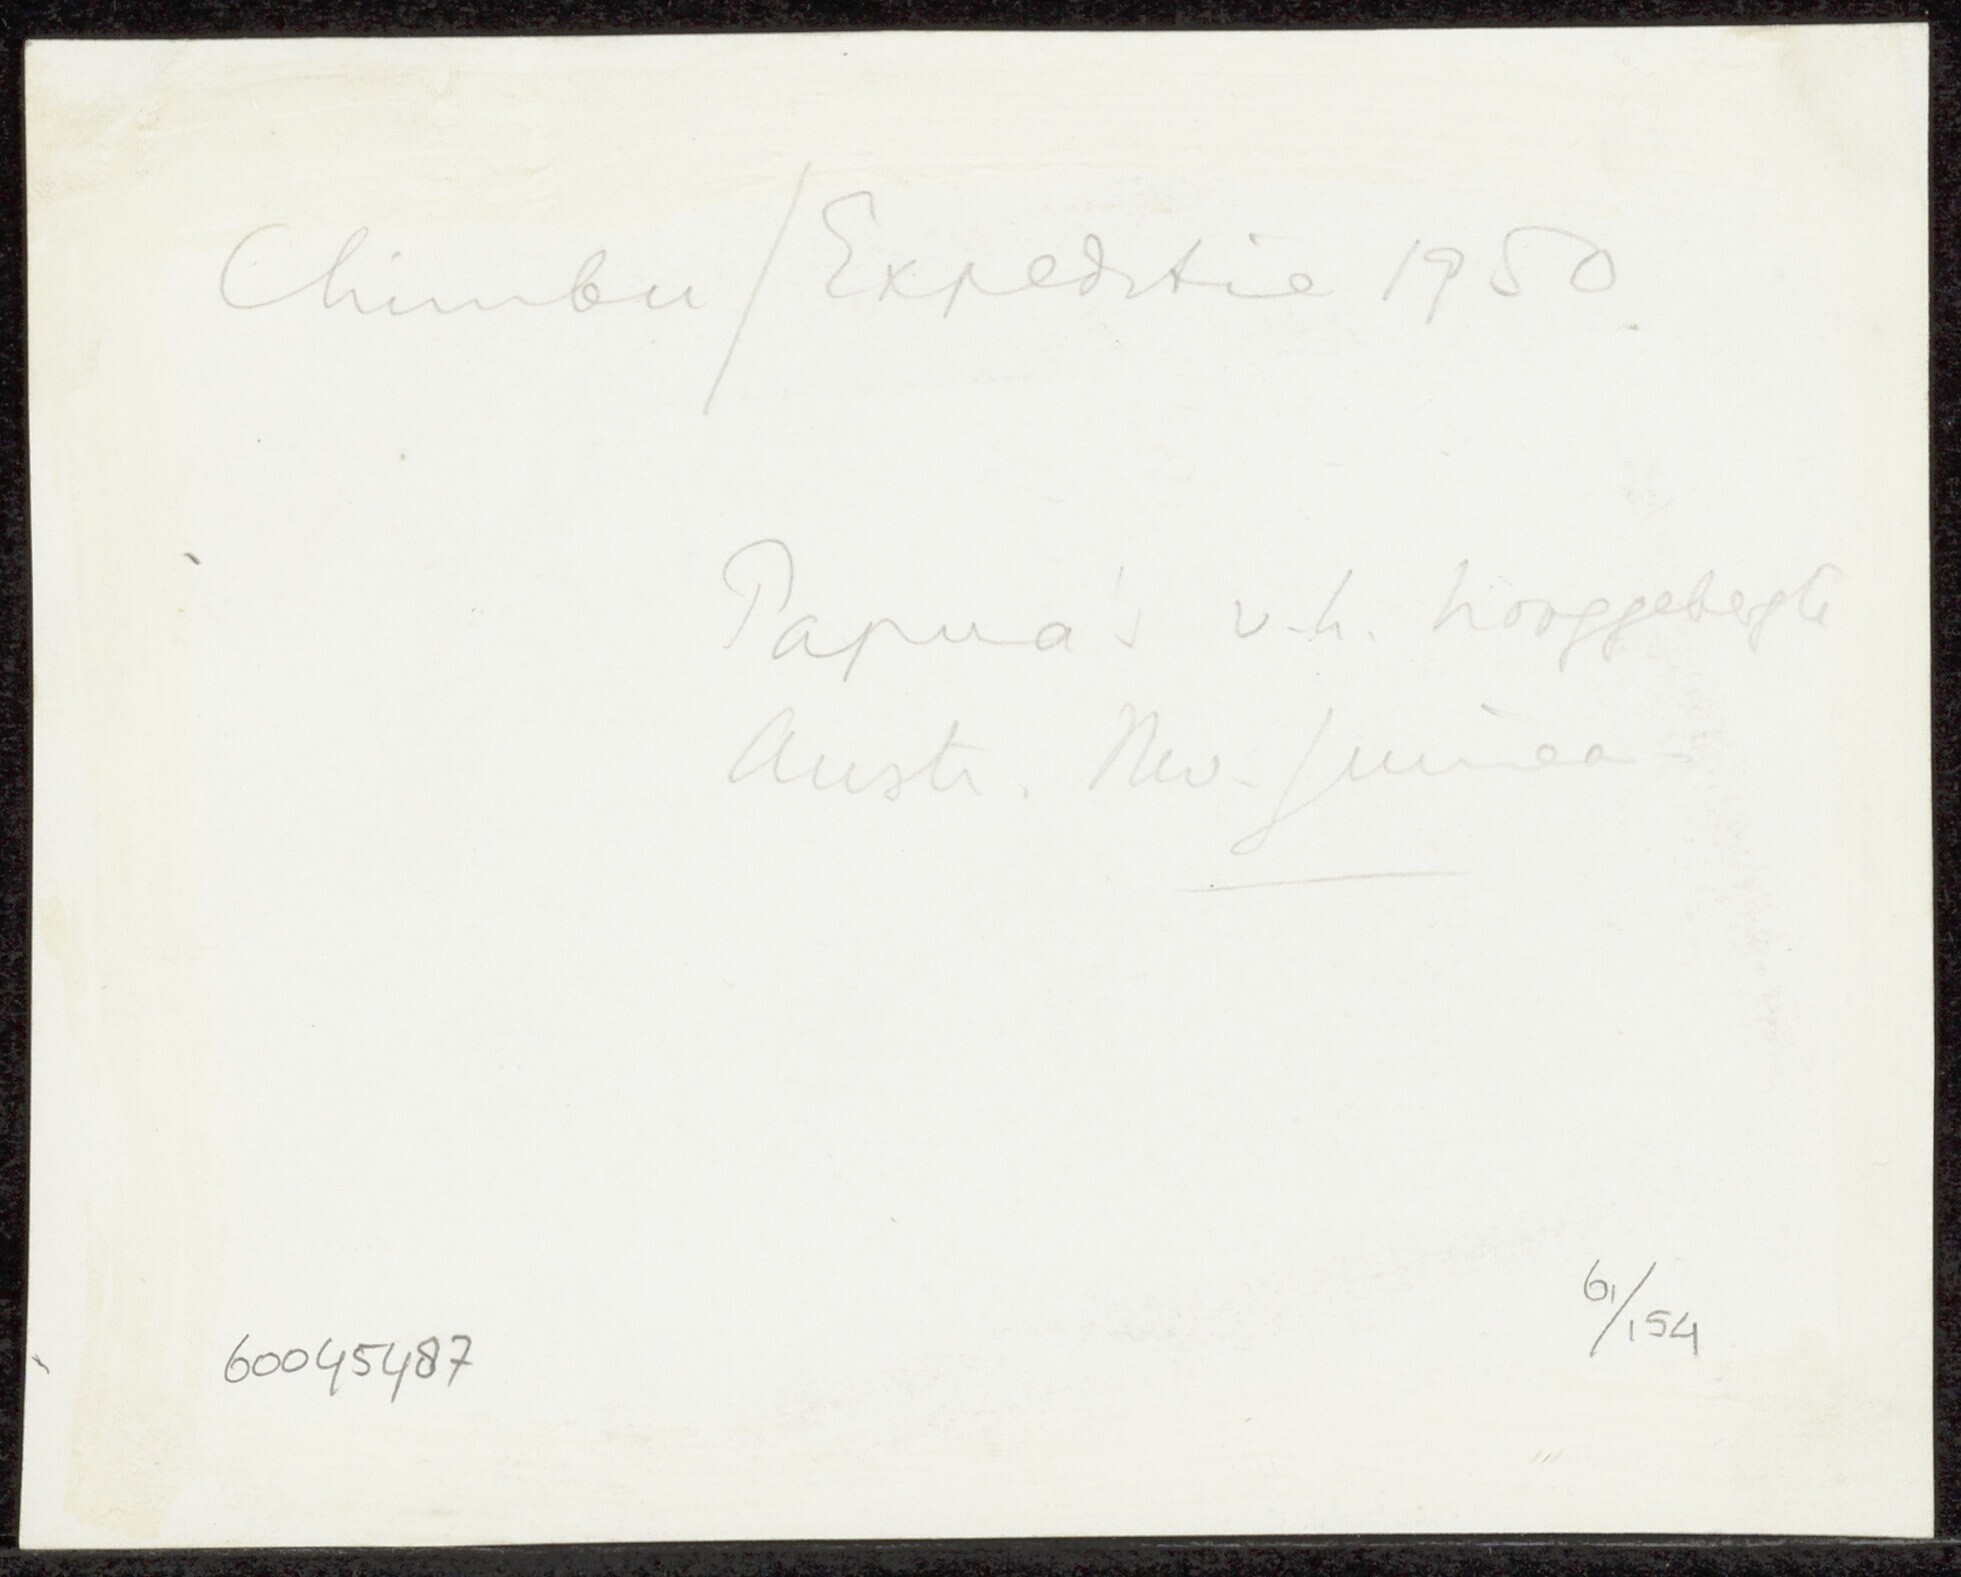 Chimbu / Expeditie 1950.
Papua's v.h. hooggebergte
Austr. Nw. Guinea
60045487
61/154